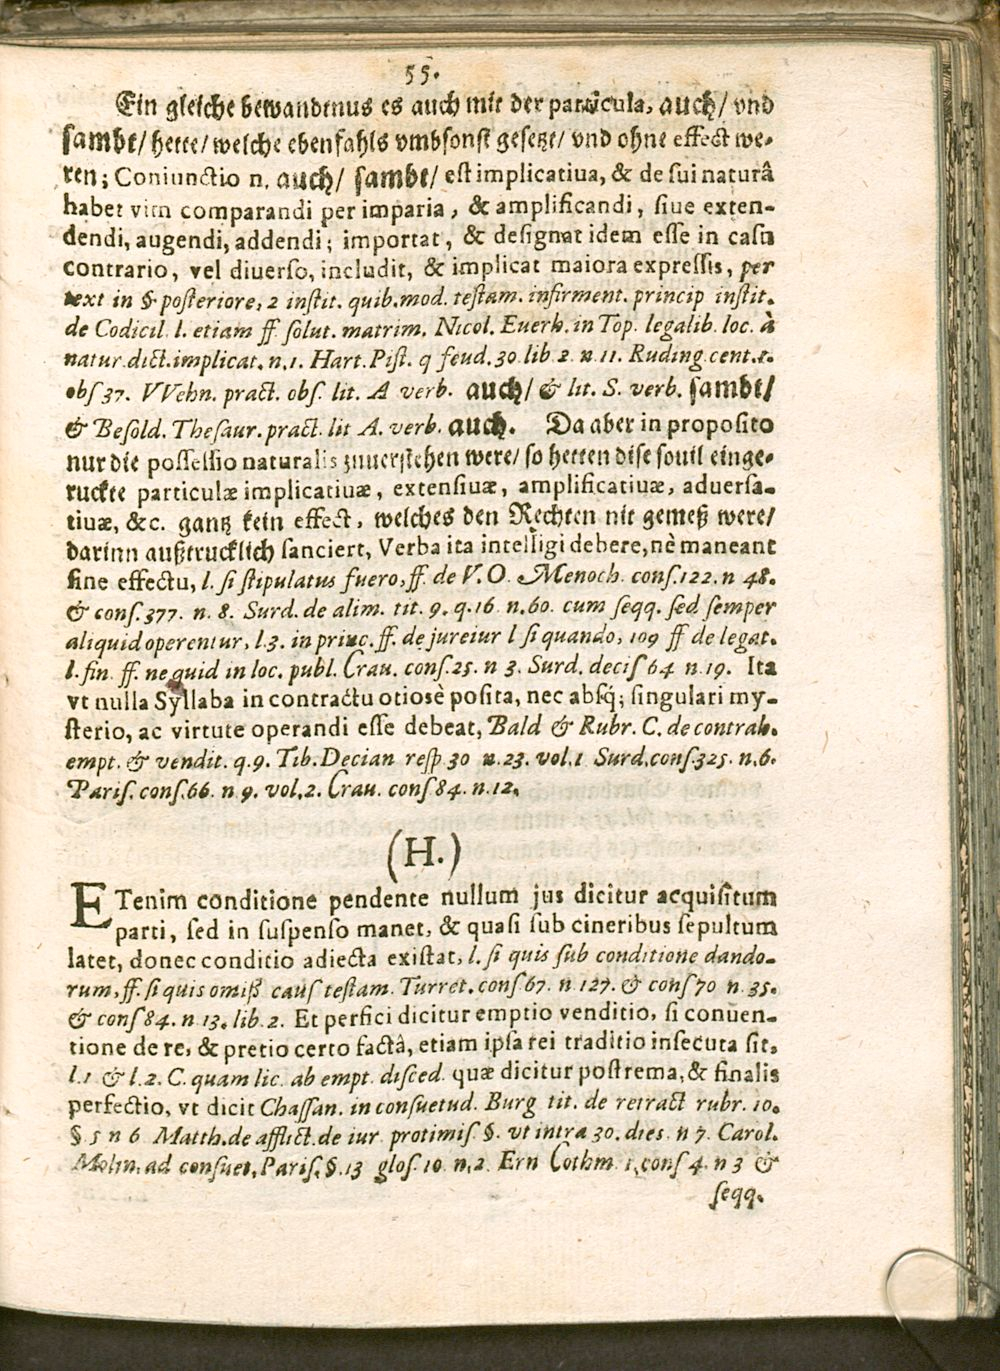 55.
Ein gleiche bewandtnus es auch mit der particula, auch/ vnd
sambt/ hette/ welche ebenfahls vmbsonst gesetzt/ vnd ohne effect we-
ren; Coniunctio n. auch/ sambt/ est implicatiua, & de sui naturâ
habet vim comparandi per imparia, & amplificandi, siue exten-
dendi, augendi, addendi; importat, & designat idem esse in casu
contrario, vel diuerso, includit, & implicat maiora expressis, per
text in §. posteriore, 2 instit. quib. mod. testam. infirment. princip instit.
de Codicil l. etiam ff solut. matrim. Nicol. Euerh. in Top. legalib. loc. à
natur. dict. implicat. n. 1. Hart. Pist. q feud. 30 lib 2. n. 11. Ruding cent. 1.
obs 37. VVehn. pract. obs. lit. A verb. auch/ & lit. S. verb. sambt/
& Besold. Thesaur. pract. lit A. verb. auch. Da aber in proposito
nur die possessio naturalis zuuerstehen were/ so hetten dise souil einge-
ruckte particulæ implicatiuæ, extensiuæ, amplificatiuæ, aduersa-
tiuæ, &c. gantz kein effect, welches den Rechten nit gemeß were/
darinn außtrucklich sanciert, Verba ita intelligi debere, nè maneant
sine effectu, l. si stipulatus fuero, ff. de V. O. Menoch. cons. 122. n 48.
& cons. 377. n. 8. Surd. de alim. tit. 9. q. 16 n. 60. cum seqq. sed semper
aliquid operentur, l. 3. in princ. ff. de jureiur l si quando, 109 ff de legat.
l. fin. ff. ne quid in loc. publ. Crau. cons. 25. n 3. Surd. decis 64 n. 19. Ita
vt nulla Syllaba in contractu otiosè posita, nec absq́; singulari my-
sterio, ac virtute operandi esse debeat, Bald & Rubr. C. de contrah.
empt. & vendit. q. 9. Tib. Decian resp 30 n. 23. vol. 1 Surd. cons. 325. n. 6.
Paris. cons. 66. n 9. vol. 2. Crau. cons 84. n. 12.
(H.)
ETenim conditione pendente nullum jus dicitur acquisitum
parti, sed in suspenso manet, & quasi sub cineribus sepultum
latet, donec conditio adiecta existat, l. si quis sub conditione dando-
rum, ff. si quis omiß caus testam. Turret. cons 67. n 127. & cons 70 n. 35.
& cons 84. n 13. lib. 2. Et perfici dicitur emptio venditio, si conuen-
tione de re, & pretio certo factâ, etiam ipsa rei traditio insecuta sit,
l. 1 & l. 2. C. quam lic. ab empt. disced. quæ dicitur postrema, & finalis
perfectio, vt dicit Chassan. in consuetud. Burg tit. de retract rubr. 10.
§ 5 n 6 Matth. de afflict. de iur protimis §. vt intra 30. dies n 7. Carol.
Molin. ad consuet. Paris. §. 13 glos. 10 n. 2. Ern Cothm. 1. cons 4. n 3 &
seqq.